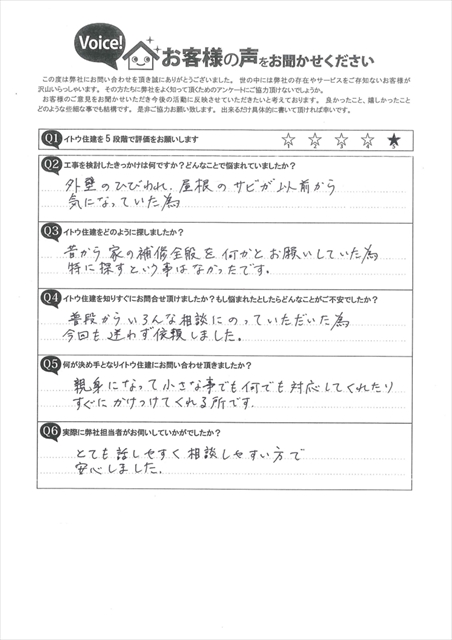 Voice!
お客様の声をお聞かせください
この度は弊社にお問い合わせを頂き誠にありがとうございました。世の中には弊社の存在やサービスをご存知ないお客様が
沢山いらっしゃいます。その方たちに弊社をよく知って頂くためのアンケートにご協力頂けないでしょうか。
お客様のご意見をお聞かせいただき今後の活動に反映させていただきたいと考えております。良かったこと、嬉しかったこと
どのような些細な事でも結構です。是非ご協力お願い致します。出来るだけ具体的に書いて頂ければ幸いです。
Q1 イトウ住建を5段階で評価をお願いします ☆ ☆ ☆ ☆ ★
1 2 3 4
Q2 工事を検討したきっかけは何ですか?どんなことで悩まれていましたか?
外壁のひびわれ、屋根のサビが以前から
気になっていた為
Q3 イトウ住建をどのように探しましたか?
昔から家の補修全般を何かとお願いしていた為
特に探すという事はなかったです。
Q4 イトウ住建を知りすぐにお問合せ頂けましたか?もし悩まれたとしたらどんなことがご不安でしたか?
普段からいろんな相談にのっていただいた為
今回も迷わず依頼しました。
Q5 何が決め手となりイトウ住建にお問い合わせ頂きましたか?
親身になって小さな事でも何でも対応してくれたり
すぐにかけつけてくれる所です.
Q6 実際に弊社担当者がお伺いしていかがでしたか?
とても話しやすく相談しやすい方で
安心しました.